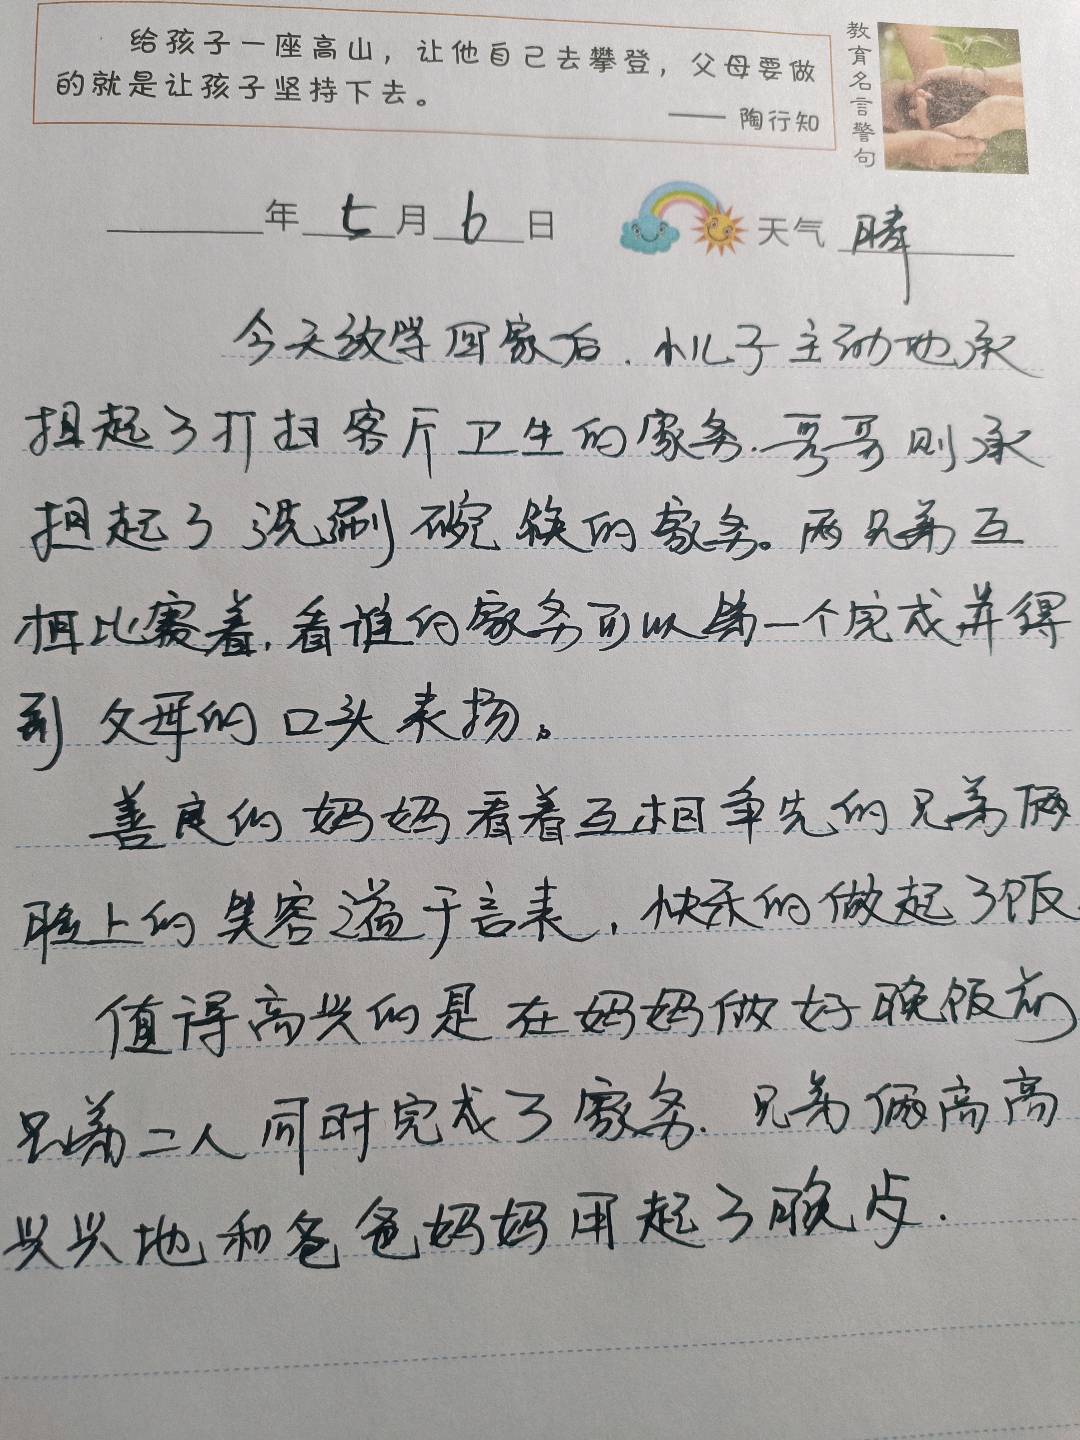 给孩子一座高山，让他自己去攀登，父母要做
的就是让孩子坚持下去。
—— 陶行知
教育名言警句
年 七 月 6 日 天气 晴
今天放学回家后，小儿子主动地承
担起了打扫客厅卫生的家务，哥哥则承
担起了洗刷碗筷的家务。两兄弟互
相比赛着，看谁的家务可以第一个完成并得
到父母的口头表扬。
善良的妈妈看着互相争先的兄弟俩
脸上的笑容溢于言表，快乐的做起了饭.
值得高兴的是在妈妈做好晚饭前
兄弟二人同时完成了家务.兄弟俩高高
兴兴地和爸爸妈妈用起了晚步.